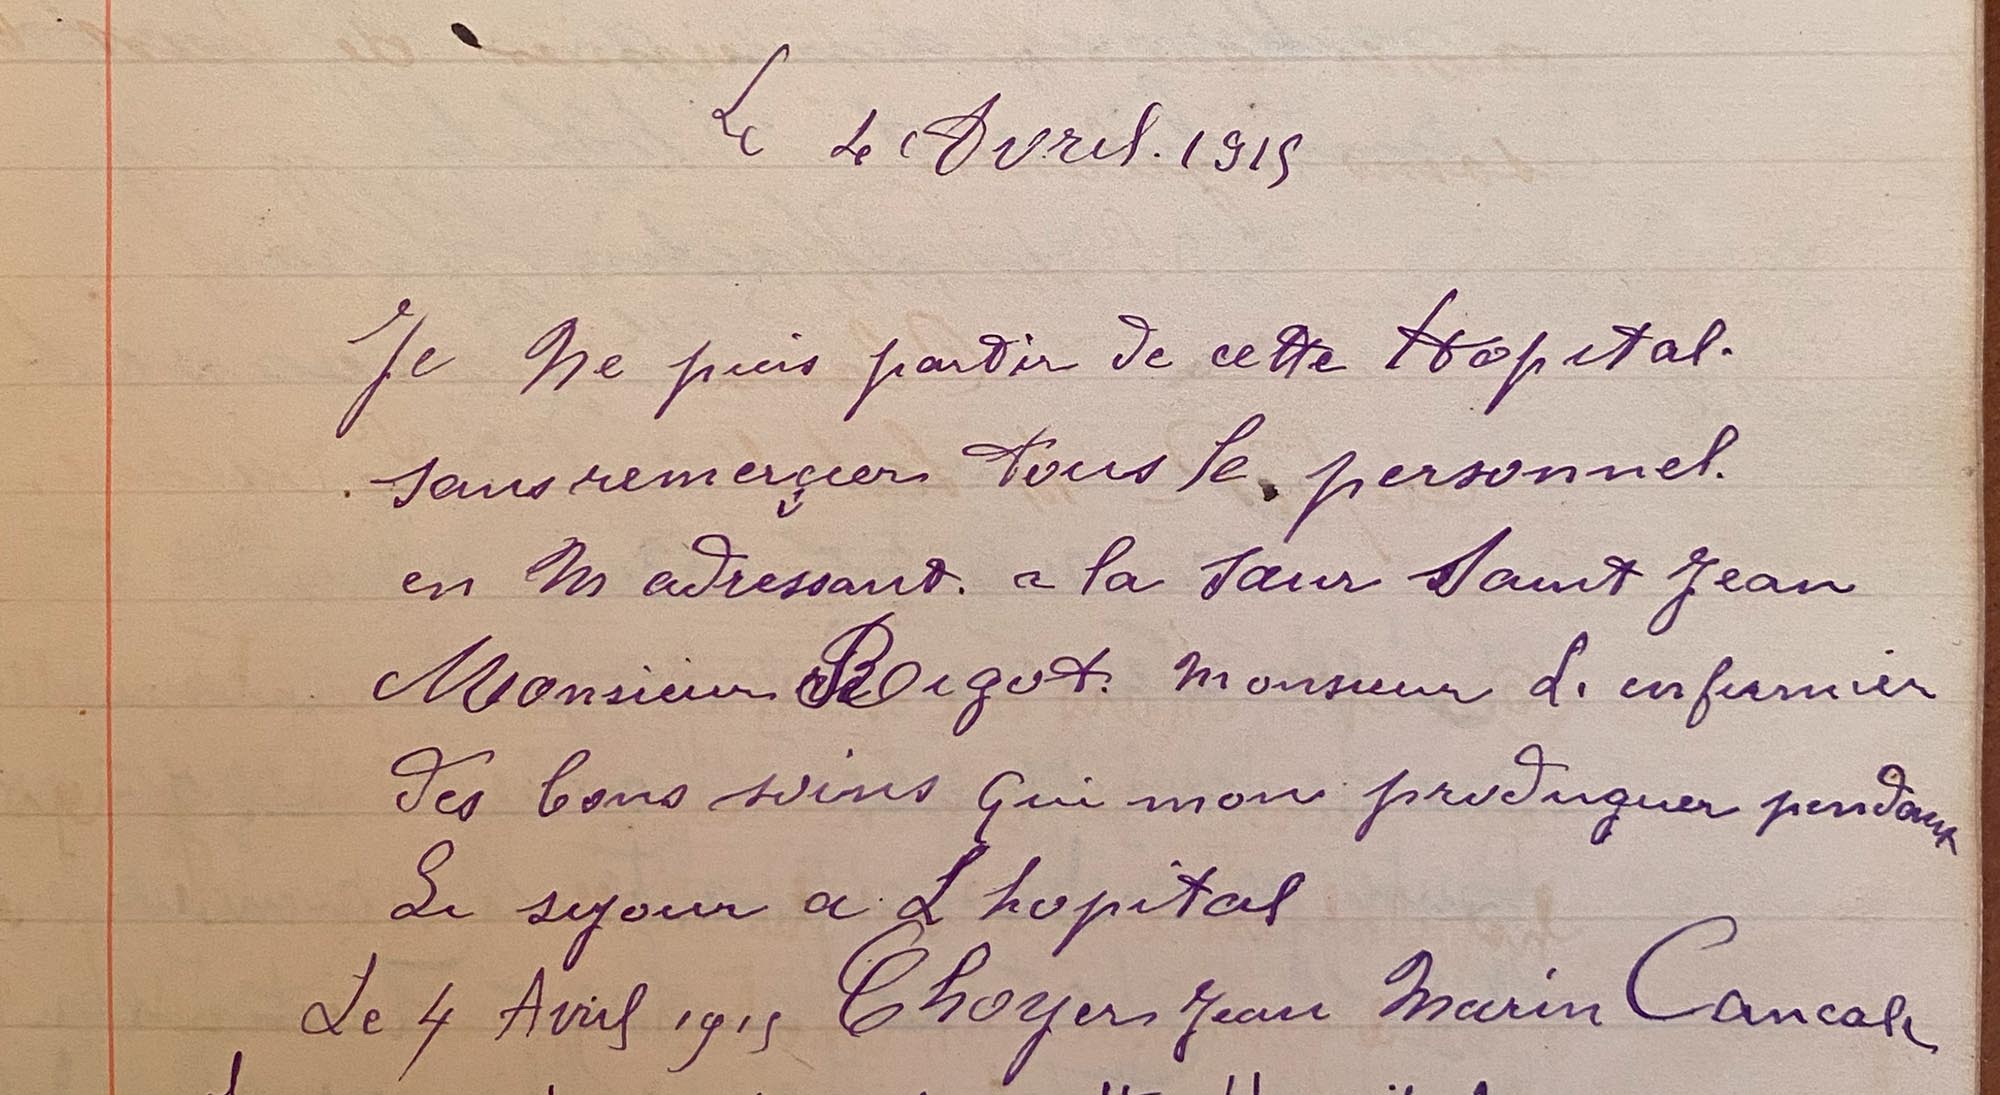 Le 4 Avril. 1915
Je Ne puis partir de cette Hopital.
sans remerçier tous le personnel.
en M adressant. a la sœur Saint Jean
Monsieur Bigot. Monsieur L. enfirmier
des bons soins qui mon produguer pendant
Le sejour a L hopital
Le 4 Avril 1915 Choyer Jean Marin Cancale